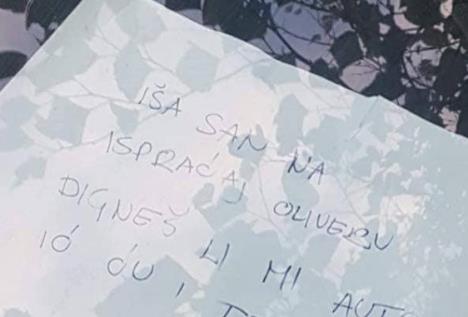 IŠA SAN NA
ISPRAĆAJ OLIVERU
DIGNEŠ LI MI AUTO
IĆ ĆU,